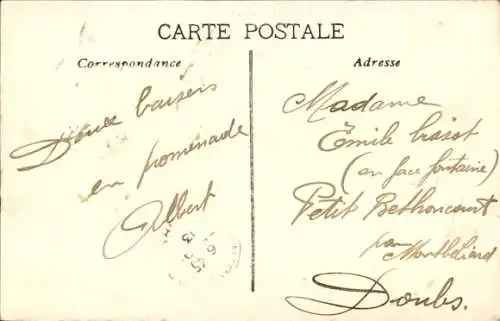 CARTE POSTALE
Correspondance
Adresse
Doux baisers
en promenade
Albert
Madame
Emile
(en face fontaine)
Petit Bethoncourt
par Montbéliard
Doubs.